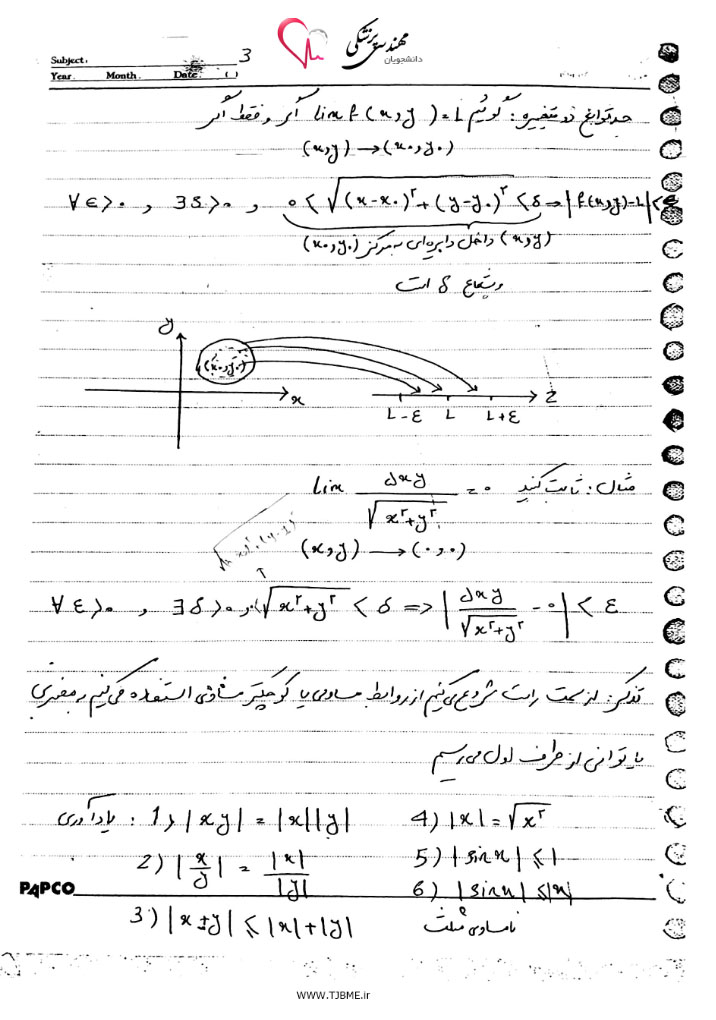 مهندسی پزشکی
دانشجویان
Subject.
Year. Month. Date. ( )
3
حد توابع دو متغیره: گوئیم lim f(x,y) = L اگر و فقط اگر
(x,y) → (x۰,y۰)
∀ε>۰ , ∃δ>۰ , ۰<√((x-x۰)²+(y-y۰)²) <δ → |f(x,y)-L|<ε
(x,y) داخل دایره‌ای به مرکز (x۰,y۰)
و شعاع δ است
y
(x۰,y۰)
x
L-ε L L+ε
z
مثال: ثابت کنید lim ۵xy / √(x²+y²) = ۰
(x,y) → (۰,۰)
∀ε>۰ , ∃δ>۰ , ۰<√(x²+y²) < δ => |۵xy / √(x²+y²) - ۰| < ε
تذکر: از سمت راست شروع می‌کنیم از روابط مساوی یا کوچکتر مساوی استفاده می‌کنیم به مضربی
یا توانی از طرف اول می‌رسیم
یادآوری: 1) |xy| = |x||y|
2) |x/y| = |x|/|y|
3) |x±y| ≤ |x|+|y|
4) |x| = √x²
5) |sinx| ≤ 1
6) |sinx| ≤ |x|
نامساوی مثلث
PAPCO
WWW.TJBME.ir